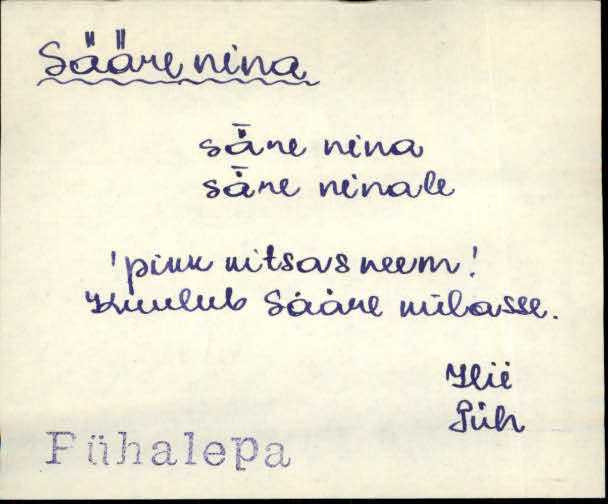 Sääre nina
sǟre nina
sǟre ninale
'pikk kitsas neem!
Kuulub Sääre külasse.
Hii
Püh
Pühalepa